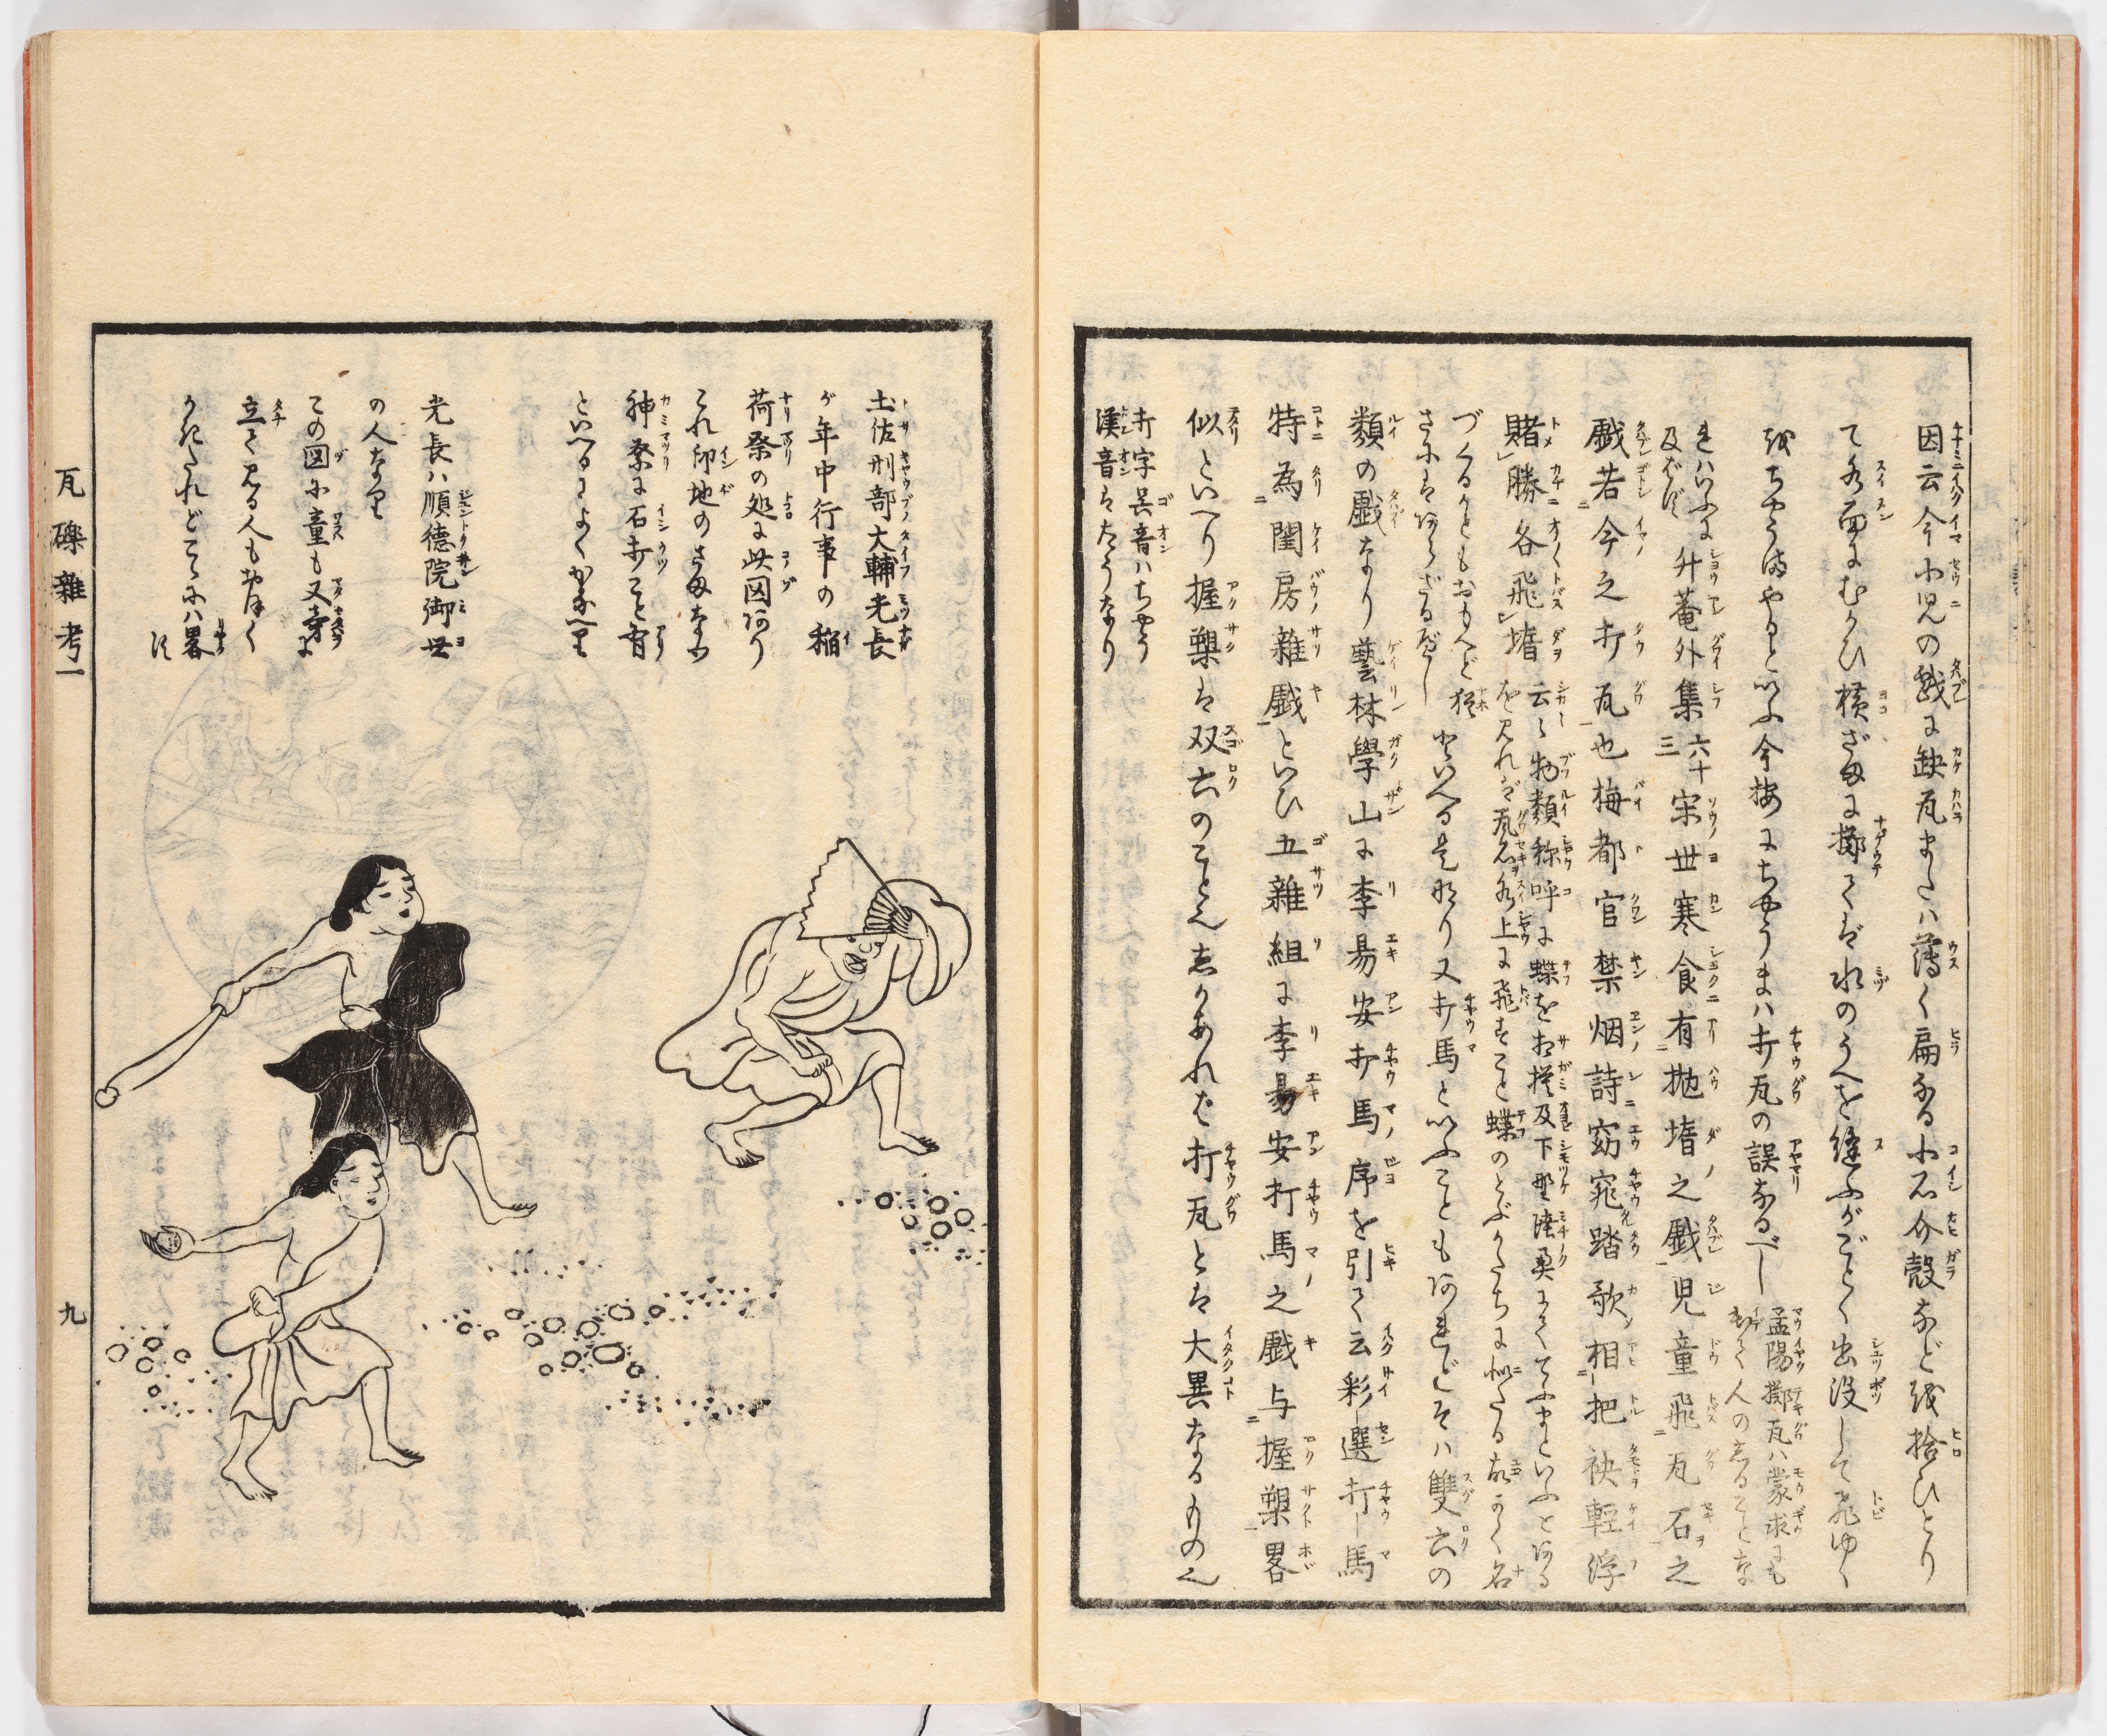 因云今小児の戯に缺瓦または薄く扁なる小石介殻など拾ひとり
て水面にむかひ横ざまに擲てば水のうへを縫ふがごとく出没して飛ゆく
をちやうまやるといふ今按にちやうまハ打瓦の誤なるべし
孟陽擲瓦ハ蒙求にも
出て人のしるところ
升菴外集六十三宋世寒食有抛堶之戯児童飛瓦石之
戯若今之打瓦也梅都官禁烟詩窈窕踏歌相把袂軽浮
賭勝各飛堶
云云物類称呼に蝶を相摸及下野陸奥にててふまといふとある
を見れバ瓦石を水上に飛すこと蝶のとぶかたちに似たる故かく名
づくるかともおもへど猶
さにはあらざるべし
といへる是なり又打馬といふこともあれどそハ雙六の
類の戯なり藝林學山に李易安打馬序を引て云彩選打馬
特為閨房雜戯といひ五雜組に李易安打馬之戯与握槊畧
似といへり握槊は双六のことなりしかあれば打瓦とは大異なるもの也
打字呉音ハちやう
漢音はたうなり
土佐刑部大輔光長
が年中行事の稲
荷祭の処に此図あり
これ印地のさまなり
神祭に石打こと有
といへるによくかなへり
光長ハ順徳院御世
の人なり
この図に童も又
立て見る人もおほく
かきたれどこゝにハ畧
す
瓦礫雜考一
九